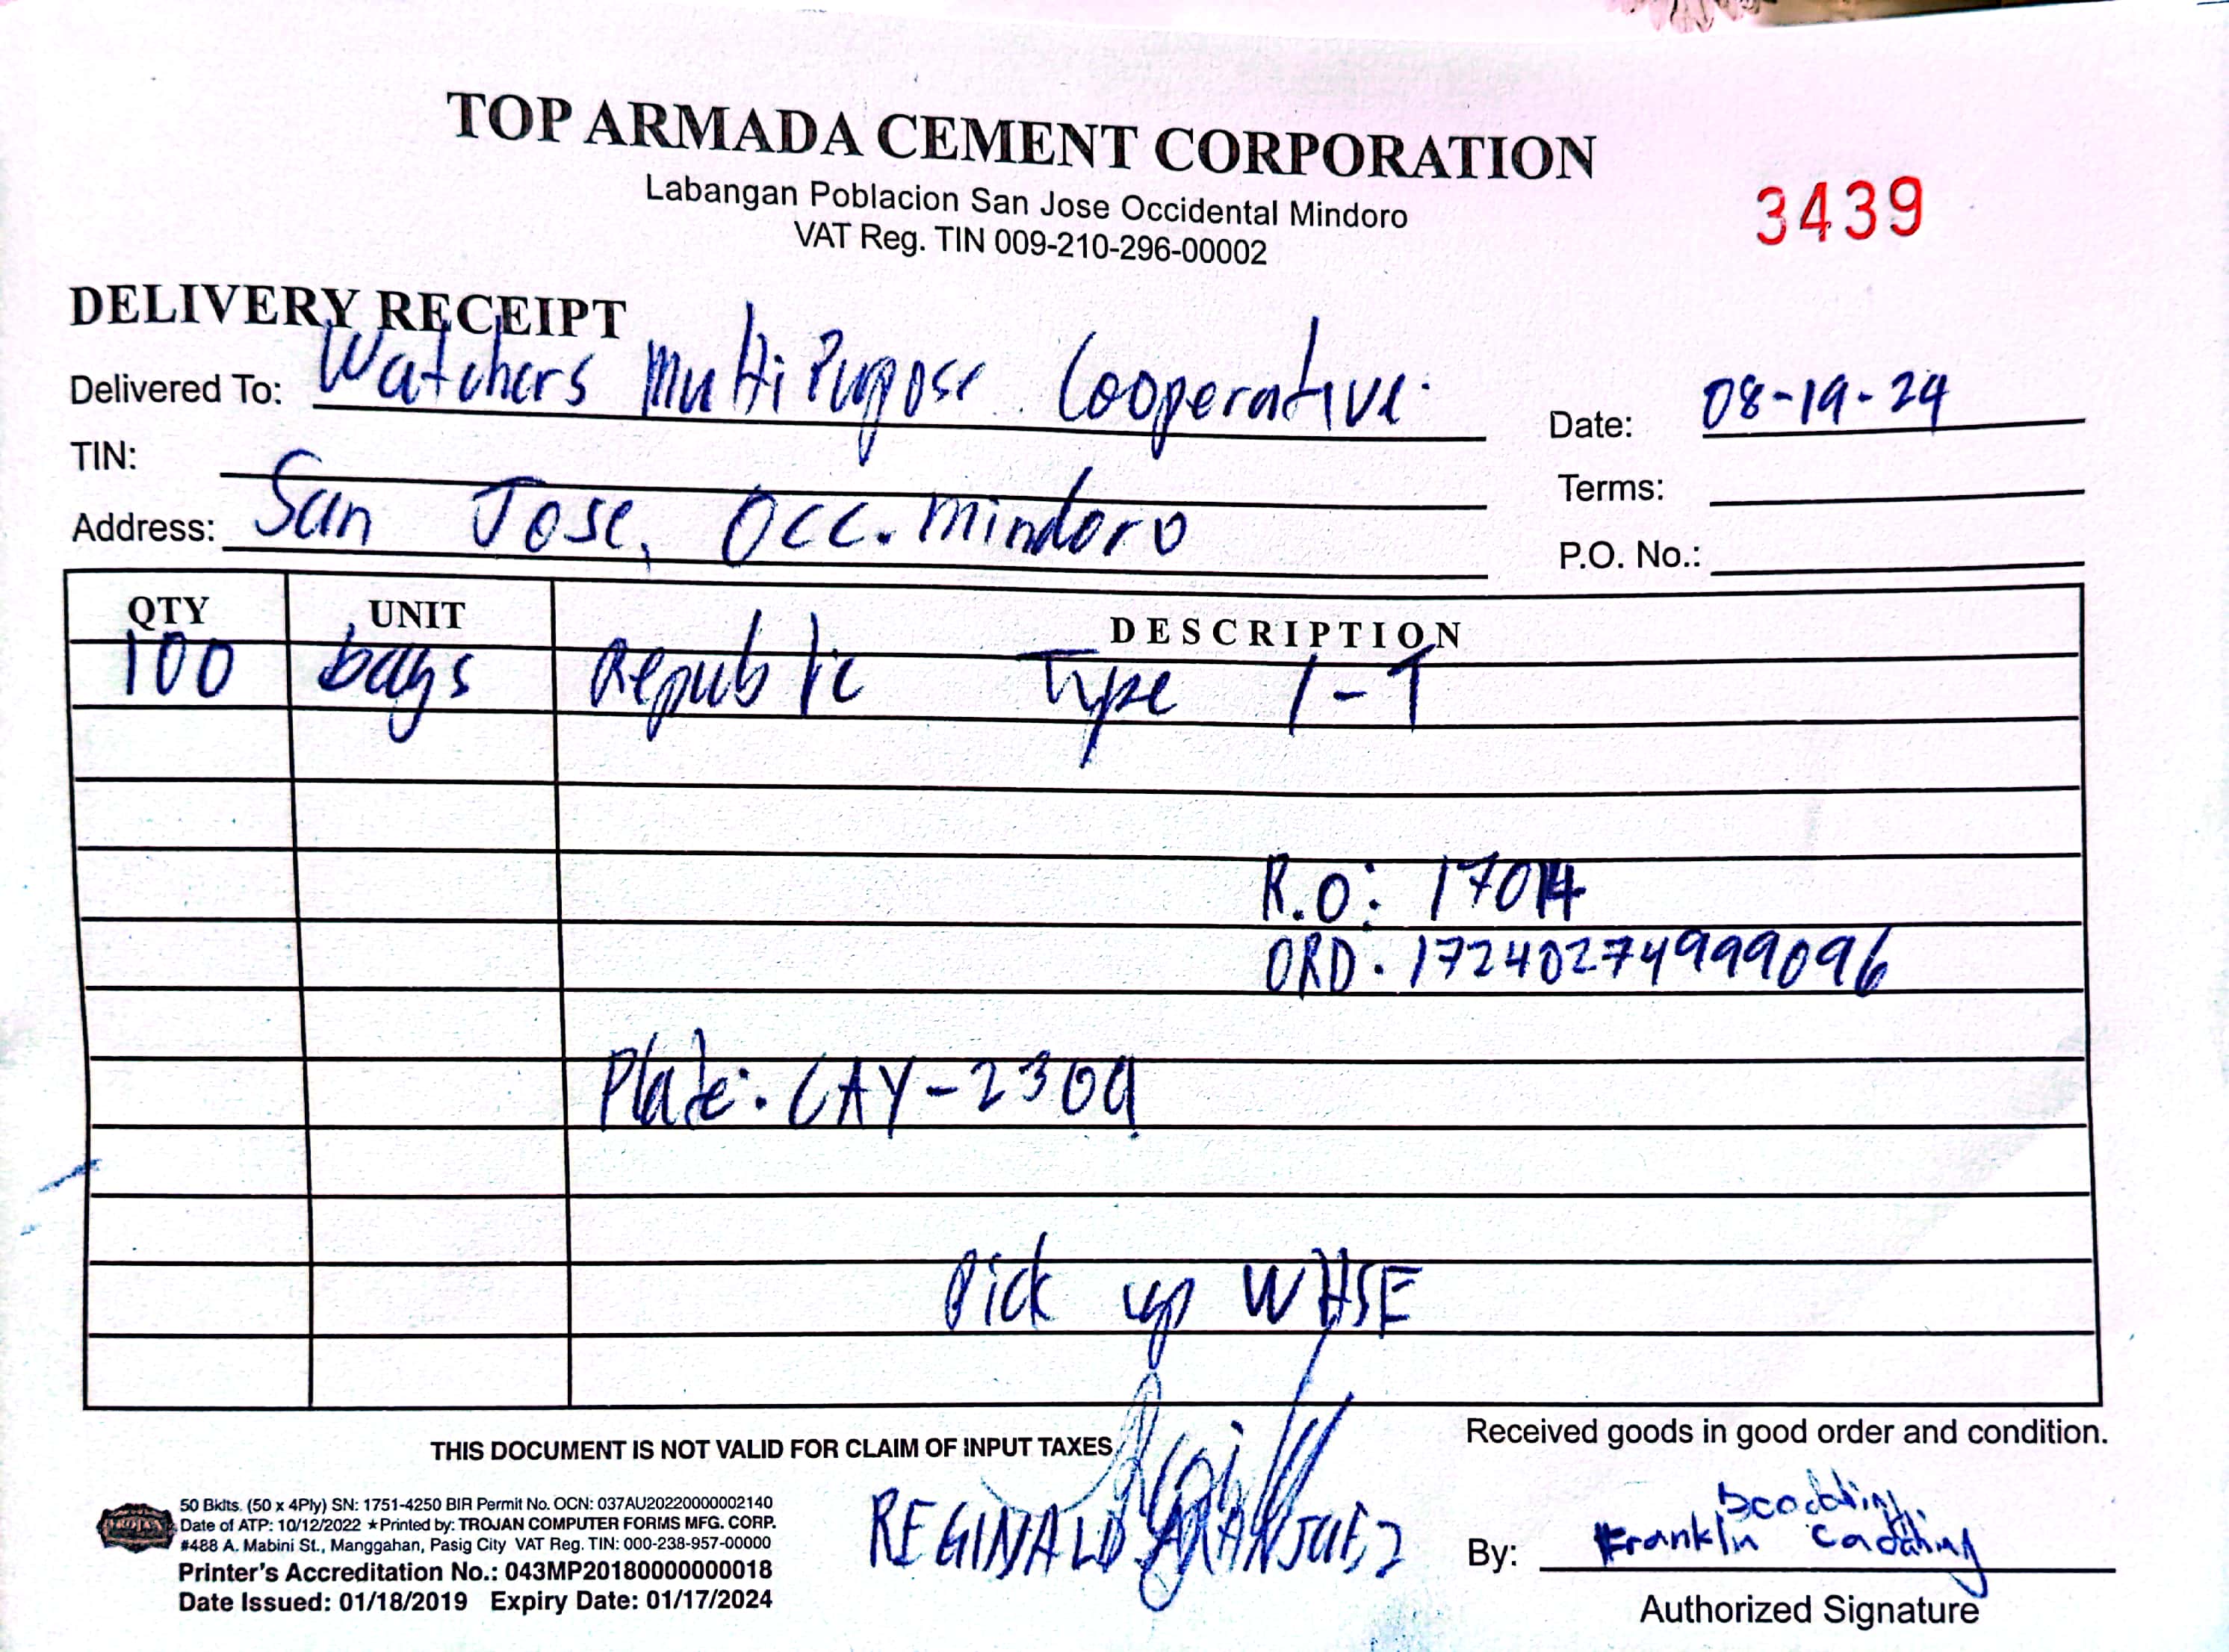 TOP ARMADA CEMENT CORPORATION
Labangan Poblacion San Jose Occidental Mindoro
VAT Reg. TIN 009-210-296-00002
3439
DELIVERY RECEIPT
Delivered To: Watchers MultiPurpose Cooperative.
Date: 08-19-24
TIN:
Terms:
Address: San Jose, Occ. Mindoro
P.O. No.:
QTY UNIT DESCRIPTION
100 bags Republic Type 1-T
R.O: 17014
ORD. 17240274999096
Plate: CAY-2309
Pick up WHSE
THIS DOCUMENT IS NOT VALID FOR CLAIM OF INPUT TAXES
Received goods in good order and condition.
TROJAN
50 Bklts. (50 x 4Ply) SN: 1751-4250 BIR Permit No. OCN: 037AU20220000002140
Date of ATP: 10/12/2022 ★Printed by: TROJAN COMPUTER FORMS MFG. CORP.
#488 A. Mabini St., Manggahan, Pasig City VAT Reg. TIN: 000-238-957-00000
Printer's Accreditation No.: 043MP20180000000018
Date Issued: 01/18/2019 Expiry Date: 01/17/2024
REGINALD ARANJUEZ
By: Franklin
Authorized Signature